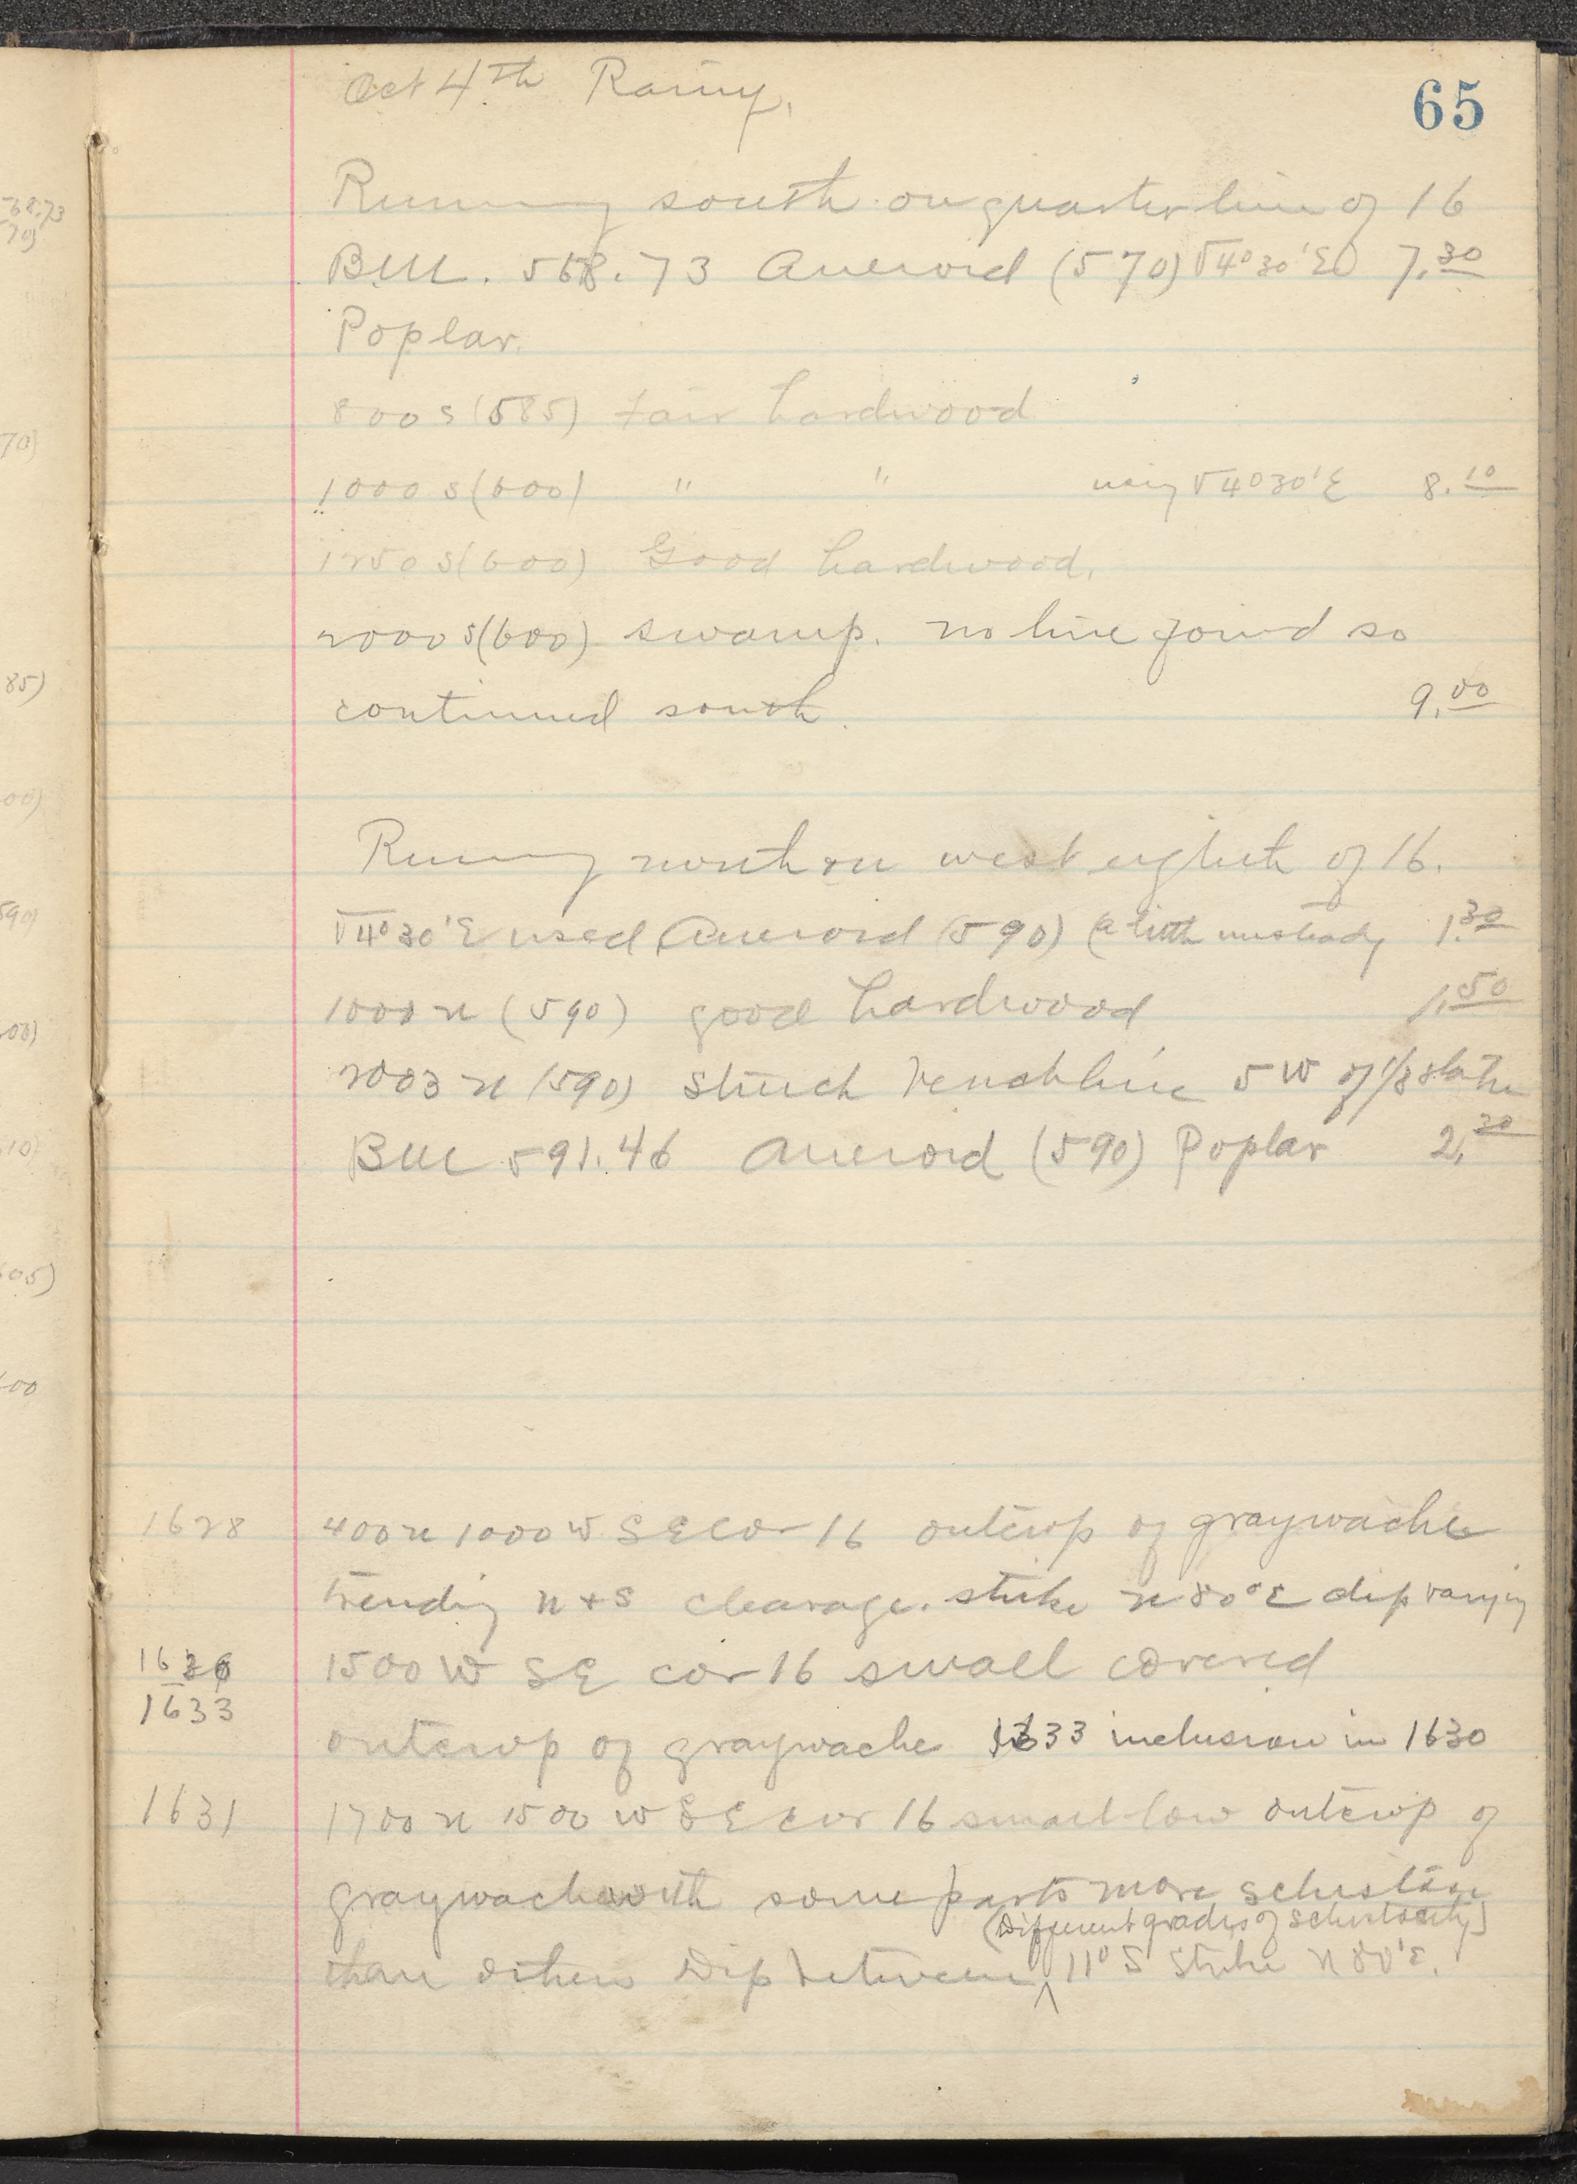 65
Oct 4th Rainy.
Running south on quarter line of 16
B.M. 568.73 Aneroid (570) V 4°30'E 7.30
Poplar.
800 S (585) fair hardwood
1000 S (600) " " using V 4°30'E 8.10
1250 S (600) Good hardwood.
2000 S (600) swamp. no line found so
continued south. 9.00
Running north on west eighth of 16.
V 4°30'E used Aneroid (590) (a little unsteady 1.30
1000 N (590) good hardwood 1.50
2003 N (590) Struck bench line 5 W of 1/8 station
BM 591.46 Aneroid (590) Poplar 2.20
1628 400 N 1000 W SE cor 16 outcrop of graywacke
trending N + S cleavage. strike N 80° E dip varying
1500 W SE cor 16 small covered
1633
outcrop of graywacke 1633 inclusion in 1630
1631 1700 N 1500 W SE cor 16 small low outcrop of
graywacke with some parts more schistose
(Different grades of schistosity)
than others Dip between ^ 11° S Strike N 80° E.